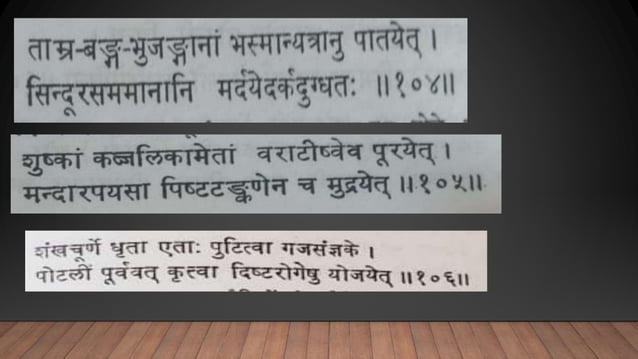 ताम्र-बङ्ग-भुजङ्गानां भस्मान्यत्रानु पातयेत् ।
सिन्दूरसममानानि मर्दयेदर्कदुग्धतः ॥१०४॥
शुष्कां कज्जलिकामेतां वराटीष्वेव पूरयेत् ।
मन्दारपयसा पिष्टटङ्कणेन च मुद्रयेत् ॥१०५॥
शंखचूर्णे धृता एताः पुटित्वा गजसंज्ञके ।
पोटलीं पूर्ववत् कृत्वा दिष्टरोगेषु योजयेत् ॥१०६॥